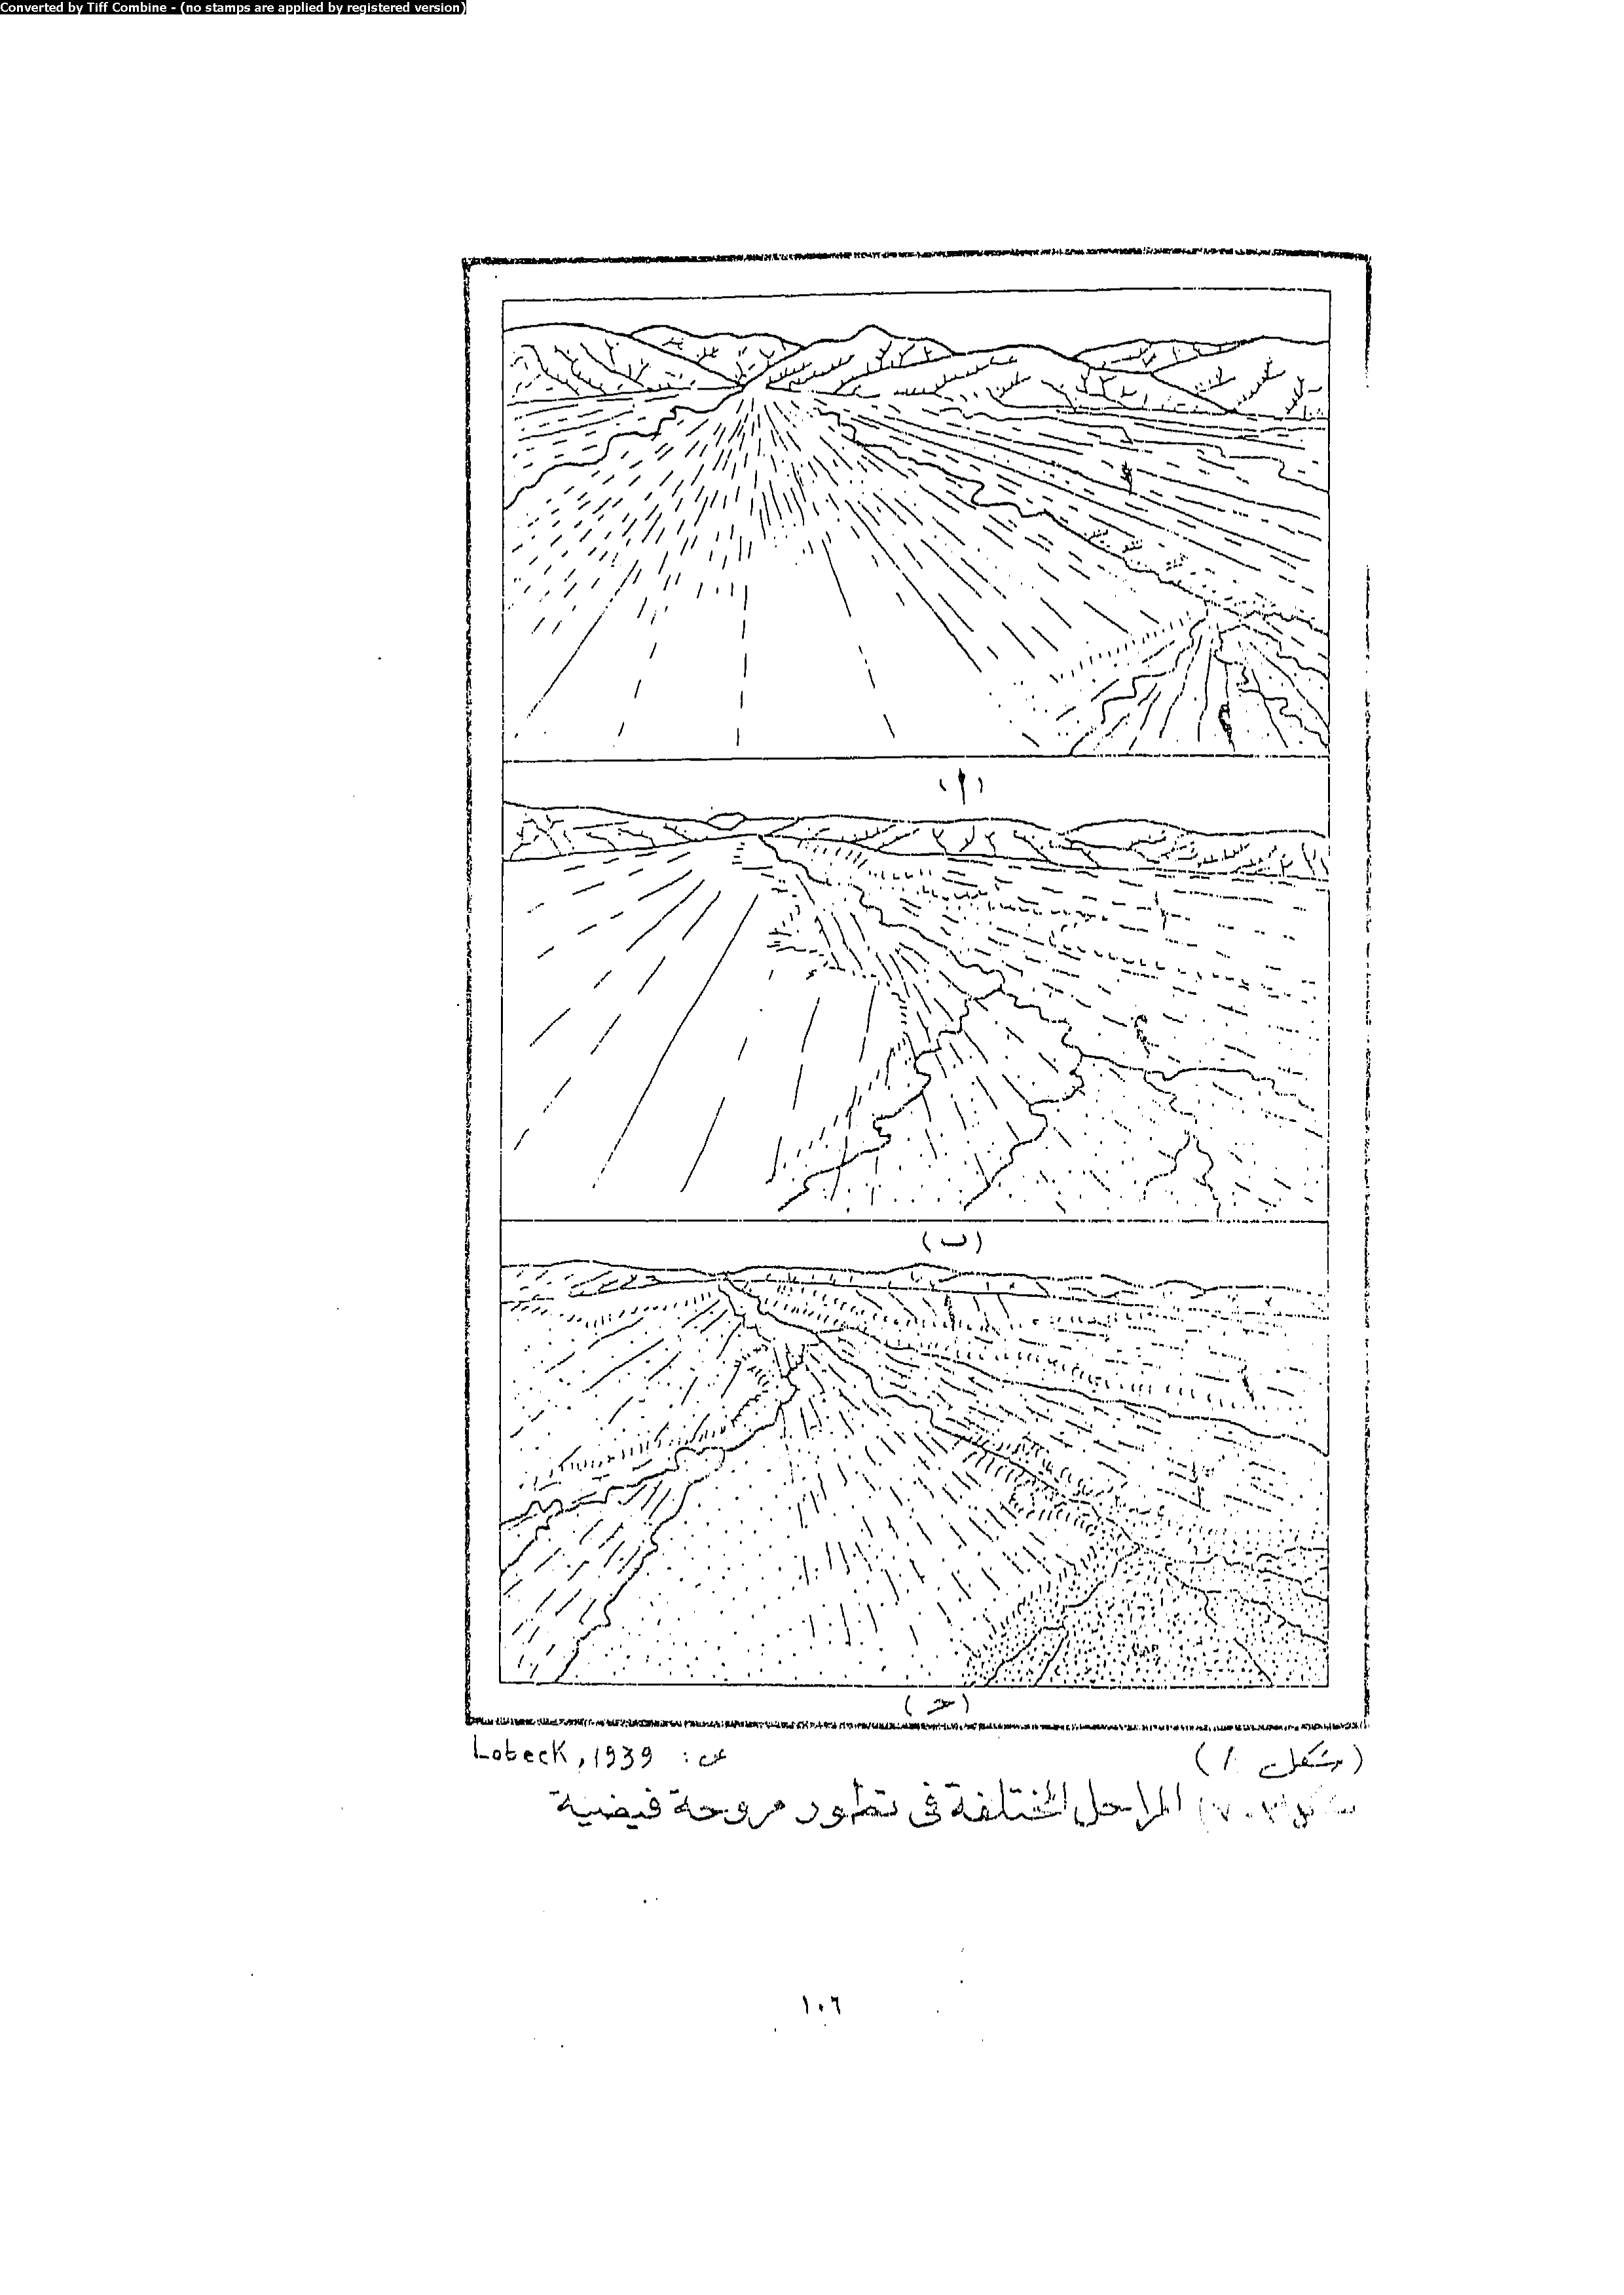 Converted by Tiff Combine - (no stamps are applied by registered version)
(أ)
(ب)
(حـ)
(شكل ٨) عن : Lobeck, 1939
المراحل المختلفة فى تطور مروحة فيضية
١٠٦